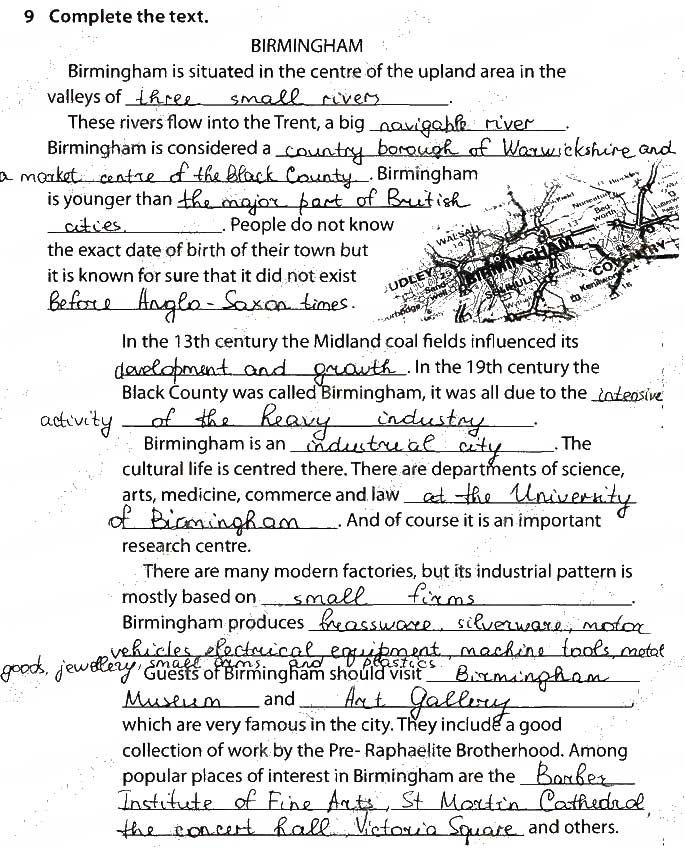 9 Complete the text.
BIRMINGHAM
Birmingham is situated in the centre of the upland area in the
valleys of three small rivers.
These rivers flow into the Trent, a big navigable river.
Birmingham is considered a country borough of Warwickshire and
a market centre of the Black County. Birmingham
is younger than the major part of British
cities. People do not know
the exact date of birth of their town but
it is known for sure that it did not exist
Before Anglo-Saxon times.
WALSALL
UDLEY
BIRMINGHAM
COVENTRY
In the 13th century the Midland coal fields influenced its
development and growth. In the 19th century the
Black County was called Birmingham, it was all due to the intensive
activity of the heavy industry.
Birmingham is an industrial city. The
cultural life is centred there. There are departments of science,
arts, medicine, commerce and law at the University
of Birmingham. And of course it is an important
research centre.
There are many modern factories, but its industrial pattern is
mostly based on small firms.
Birmingham produces brassware, silverware, motor
vehicles, electrical equipment, machine tools, metal
goods, jewellery, small arms. and plastics
Guests of Birmingham should visit Birmingham
Museum and Art Gallery,
which are very famous in the city. They include a good
collection of work by the Pre- Raphaelite Brotherhood. Among
popular places of interest in Birmingham are the Barber
Institute of Fine Arts, St Martin Cathedral,
the concert hall, Victoria Square and others.